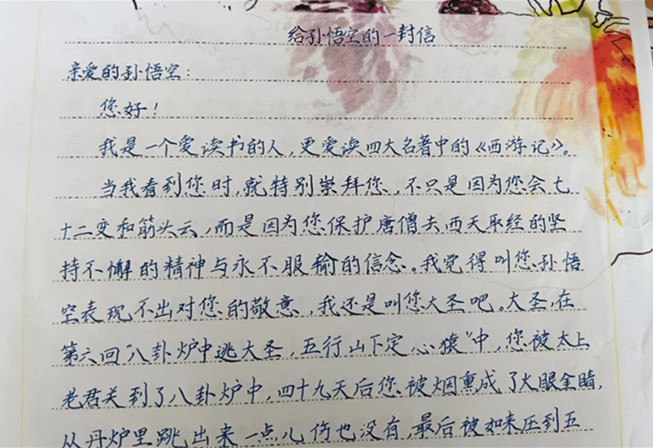 给孙悟空的一封信
亲爱的孙悟空：
您好！
我是一个爱读书的人，更爱读四大名著中的《西游记》。
当我看到您时，就特别崇拜您，不只是因为您会七
十二变和筋头云，而是因为您保护唐僧去西天取经的坚
持不懈的精神与永不服输的信念。我觉得叫您孙悟
空表现不出对您的敬意，我还是叫您大圣吧。大圣，在
第六回“八卦炉中逃大圣，五行山下定心猿”中，您被太上
老君关到了八卦炉中，四十九天后您被烟熏成了火眼金睛，
从丹炉里跳出来一点儿伤也没有，最后被如来压到五